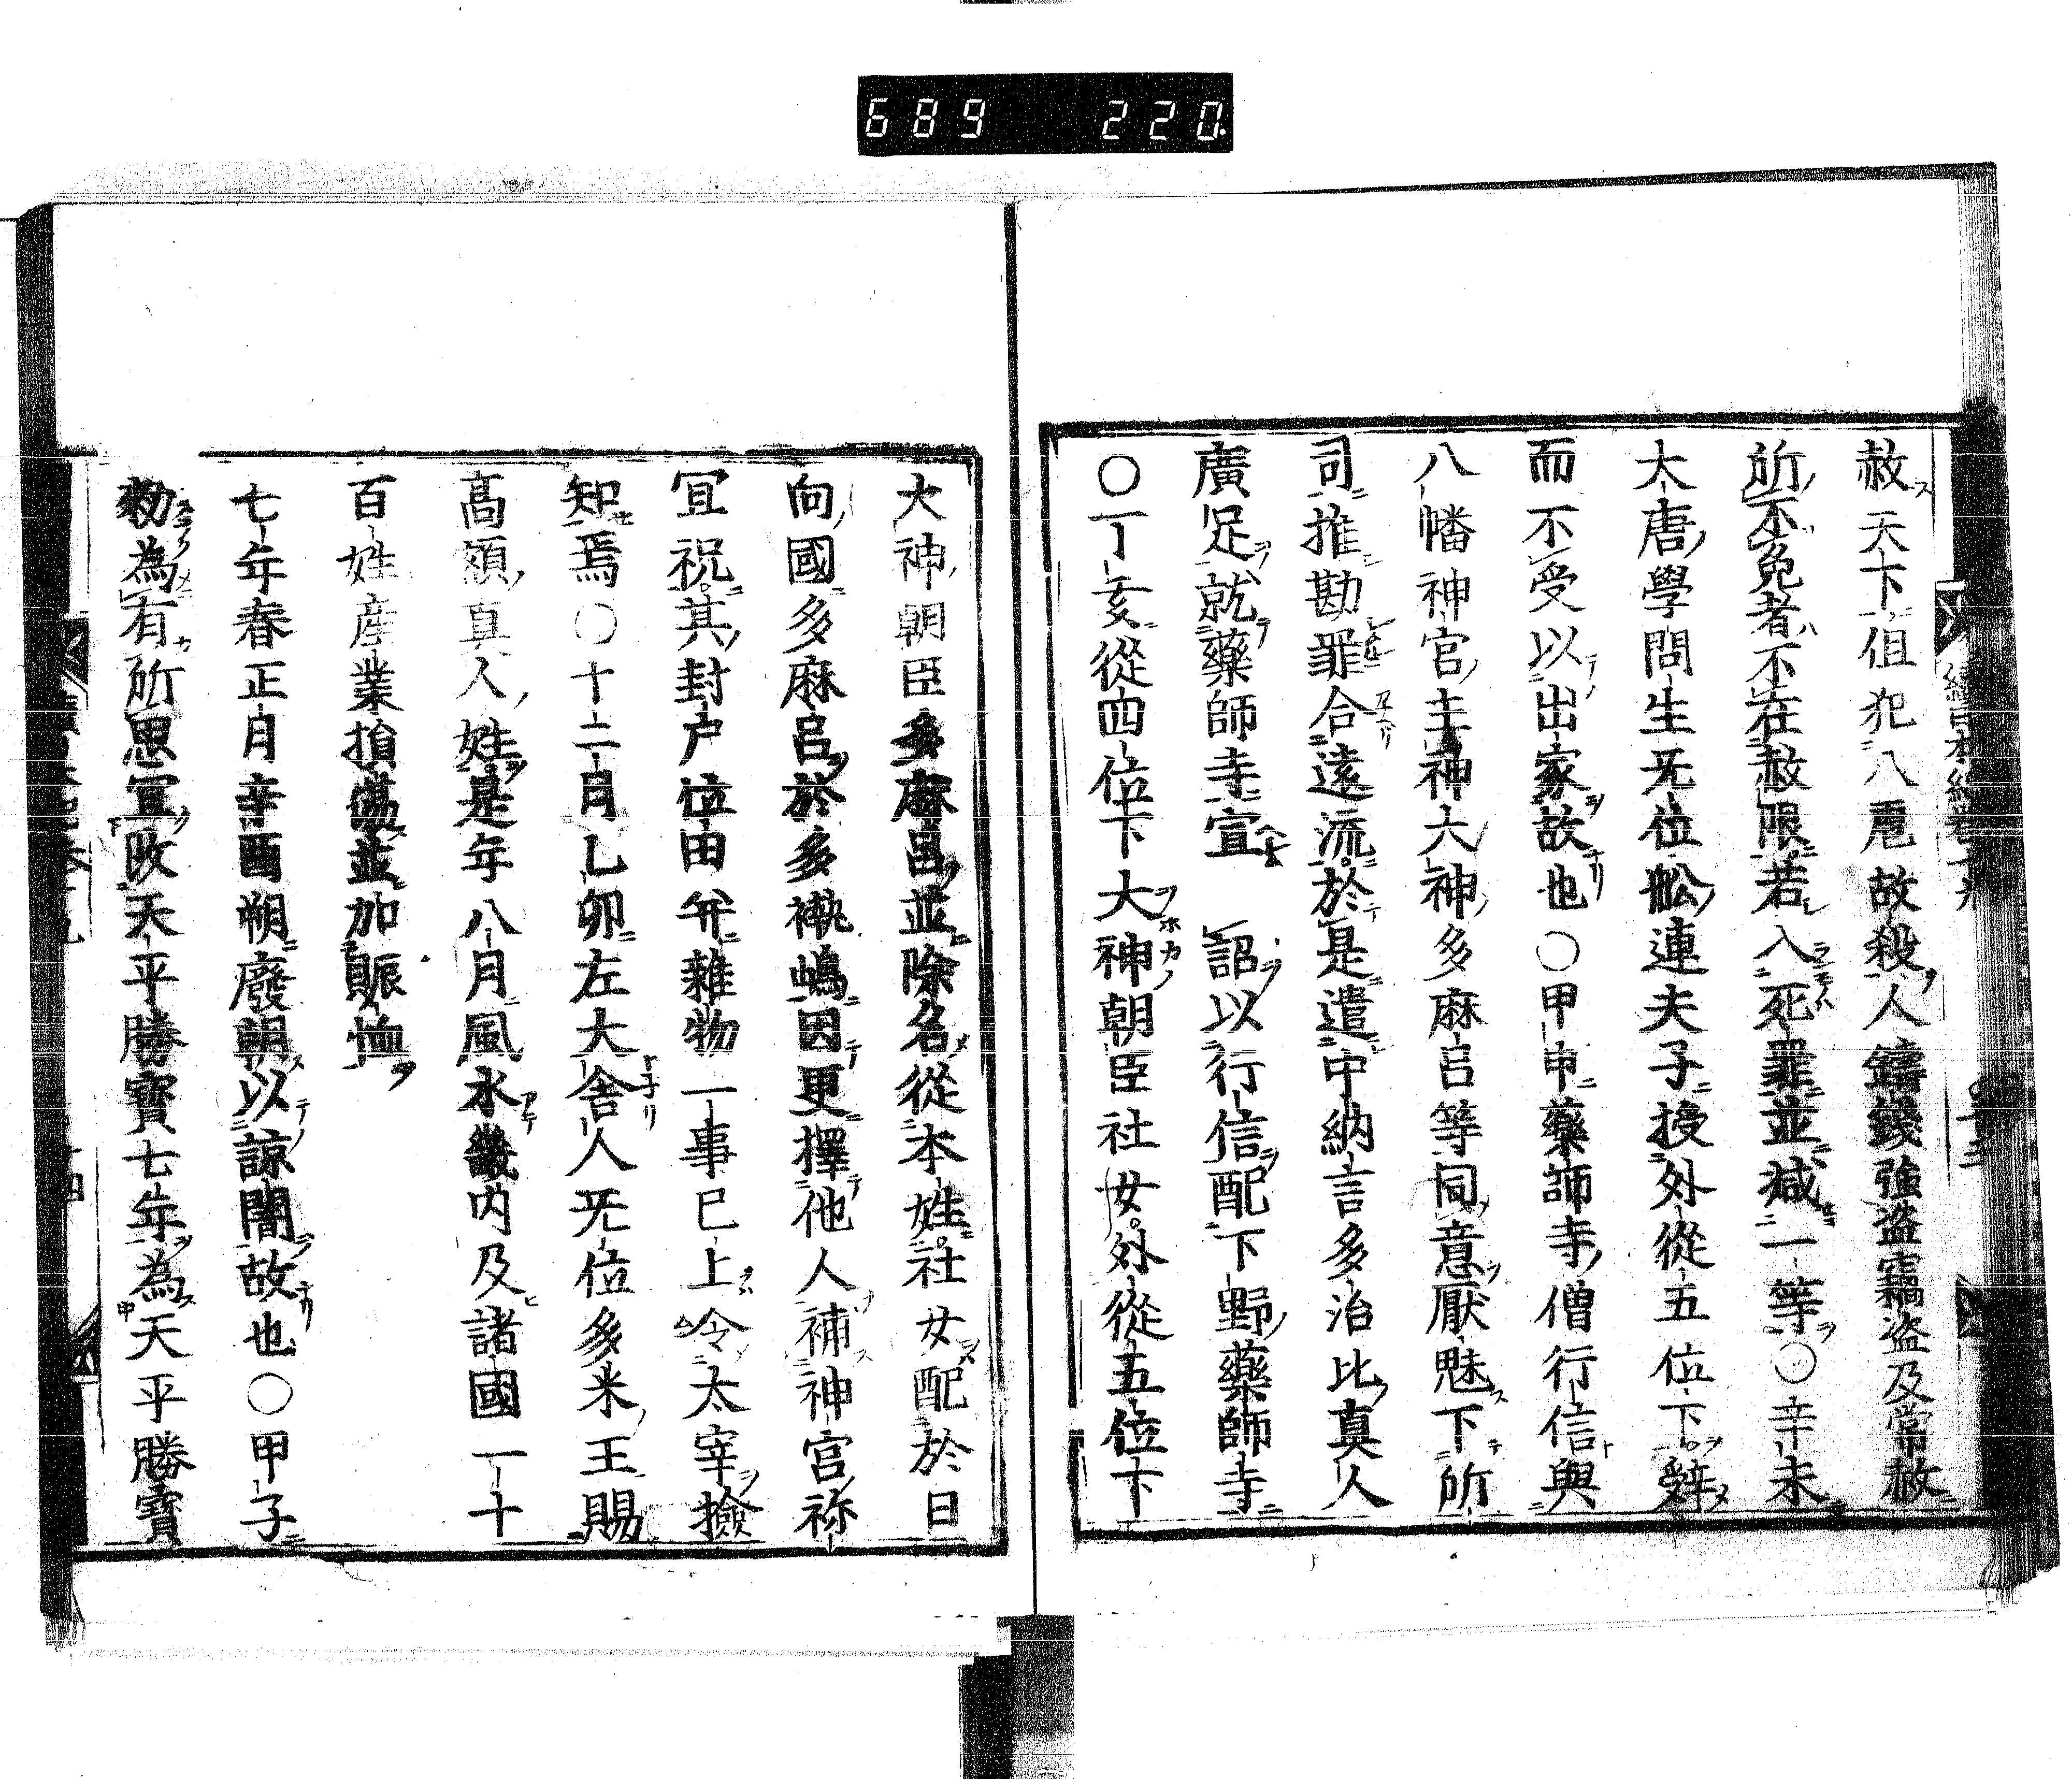 689 220
赦天下但犯八虐故殺人鑄錢強盗竊盗及常赦
所不免者不在赦限若入死罪並減一等〇辛未
大唐學問生无位舩連夫子授外從五位下辭
而不受以出家故也〇甲申藥師寺僧行信與
八幡神宮主神大神多麻呂等同意厭魅下所
司推勘罪合遠流於是遣中納言多治比真人
廣足就藥師寺宣 詔以行信配下野藥師寺
〇丁亥從四位下大神朝臣社女外從五位下
大神朝臣多麻呂並除名從本姓社女配於日
向國多麻呂於多褹嶋因更擇他人補神宮祢
宜祝其封户位田并雜物一事已上令太宰撿
知焉〇十二月乙卯左大舎人无位多米王賜
髙額真人姓是年八月風水畿内及諸國一十
百姓産業損傷並加賑恤
七年春正月辛酉朔廢朝以諒闇故也〇甲子
勑為有所思宜改天平勝寳七年為天平勝寳